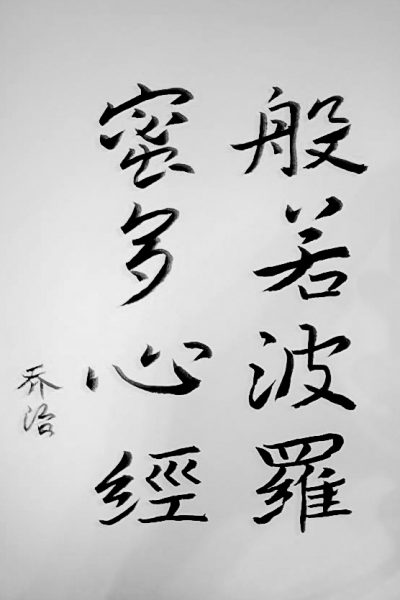 般若波羅
蜜多心經
乔治